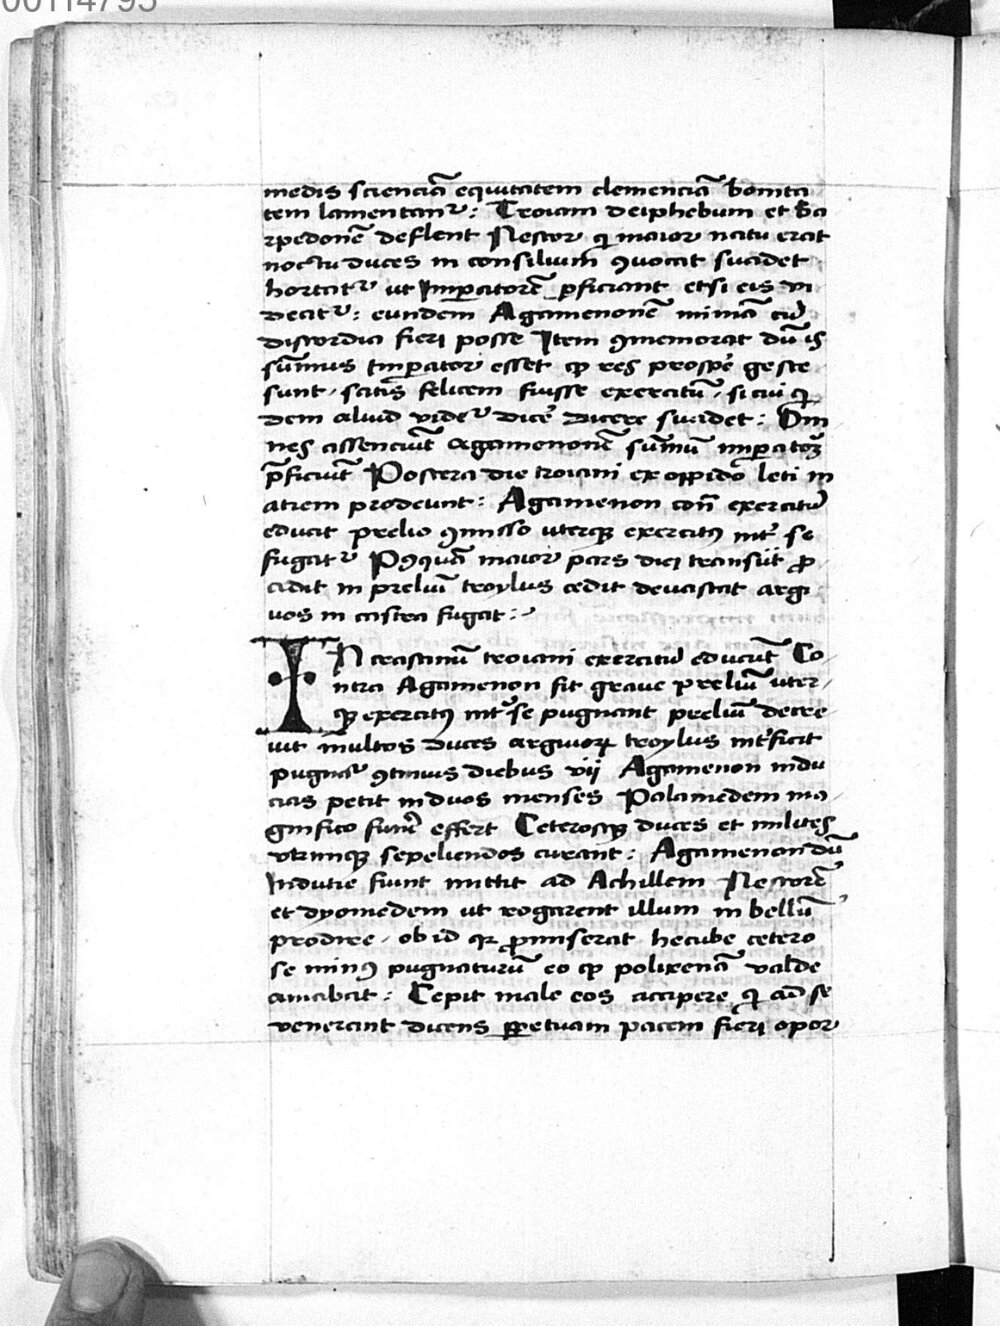 00114795
medis scienciā equitatem clemenciā bonita
tem lamentanr᷑ : Troiam deiphebum et Sa
rpedonē deflent Nestor qͥ maior natu erat
noctu duces in consilium ꝯuocat suadet
hortatr᷑ ut Imꝑatorē p̄ficiant etsi eis vi
deatr᷑ : eundem Agamenonē minīa cū
discordia fieri posse Item ꝯmemorat dū is
sūmus Imꝑator esset ꝙ res prosꝑe geste
sunt / scitīs felicem fuisse exercitū / si cui qͥ
dem aliud videtr᷑ dicē ducere suadet : Om
nes assenciūt Agamenonē sūmū imꝑatoꝝ
p̄ficiūt Postera die troiani ex oppido leti in
aciem prodeunt : Agamenon con̄ exercitū
educat prelio ꝯmisso uterqꝫ exercitꝰ int᷑ se
fugatr᷑ Pꝰquā maior pars diei transiit ꝓ
cidit in preliū troylus cedit deuastat argi
uos in castra fugat :
IN crastinū troiani exercitū educūt Co
ntra Agamenon fit graue preliū uter
qꝫ exercitꝰ int᷑ se pugnant preliū decre
uit multos duces argiuoꝝ troylus int᷑ficit
pugnatr᷑ ꝯtinuis diebus vij Agamenon indu
cias petit in duos menses Palamedem ma
gnifico funē effert Ceterosqꝫ duces et milites
utrimqꝫ sepeliendos curant : Agamenon dū
Indutie fiunt mittit ad Achillem Nestorē
et dyomedem ut rogarent illum in bellū
prodire / ob id qꝛ ꝓmiserat hecube cetero
se minꝰ pugnaturū eo ꝙ polixenā valde
amabat : Cepit male eos accipere qͥ ad se
venerant dicens ꝑpetuam pacem fieri opor